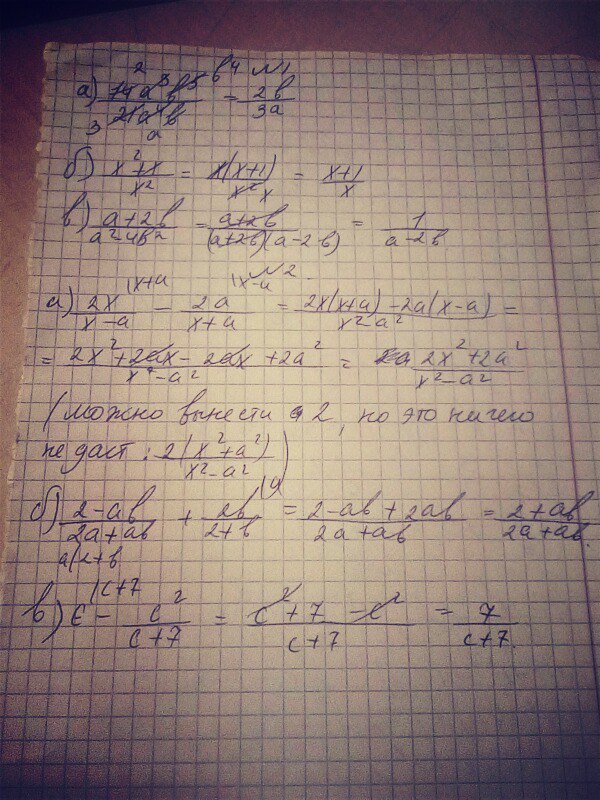 №1
а) 14a³b⁵/21a⁴b = 2b⁴/3a
б) x²+x/x² = x(x+1)/x² = x+1/x
в) a+2b/a²-4b² = a+2b/(a+2b)(a-2b) = 1/a-2b
№2
а) 2x/x-a |x+a - 2a/x+a |x-a = 2x(x+a)-2a(x-a)/x²-a² =
= 2x²+2ax-2ax+2a²/x²-a² = 2x²+2a²/x²-a²
(можно вынести 2, но это ничего
не даст: 2(x²+a²)/x²-a²)
б) 2-ab/2a+ab + 2b/2+b |a = 2-ab+2ab/2a+ab = 2+ab/2a+ab.
a(2+b
в) c |c+7 - c²/c+7 = c²+7-c²/c+7 = 7/c+7.